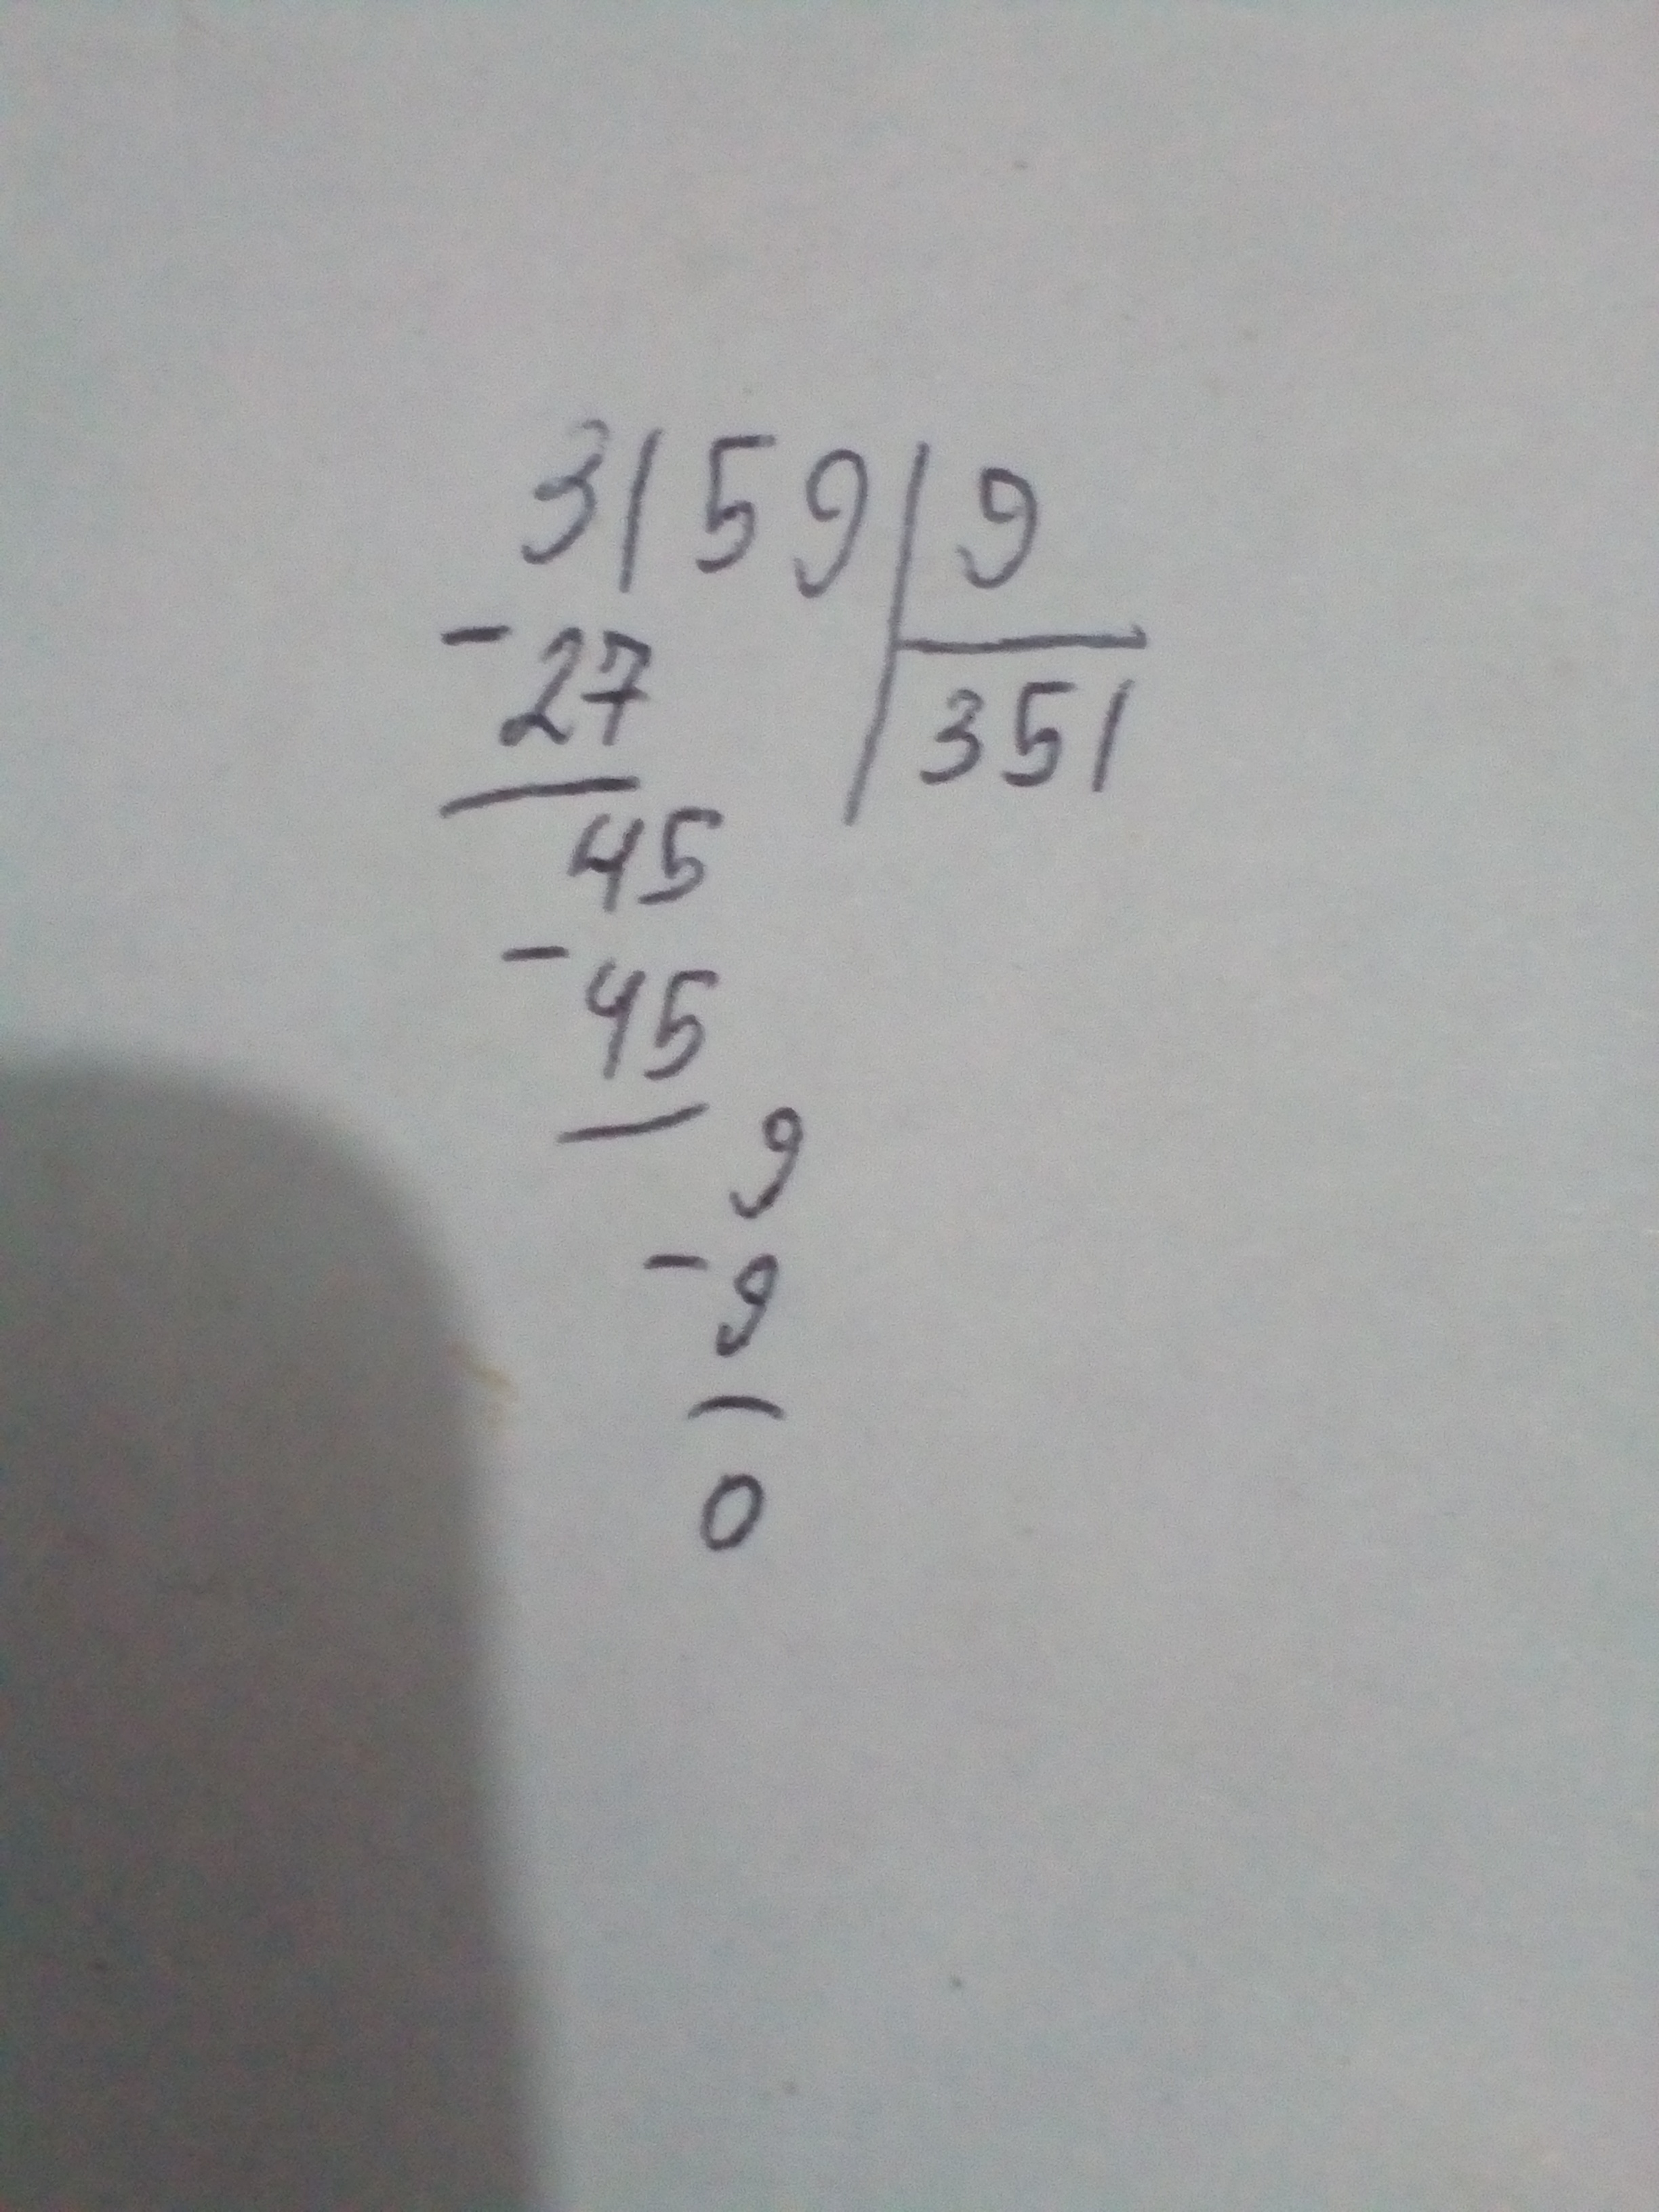 3159 9
- 27 351
45
- 45
9
- 9
0